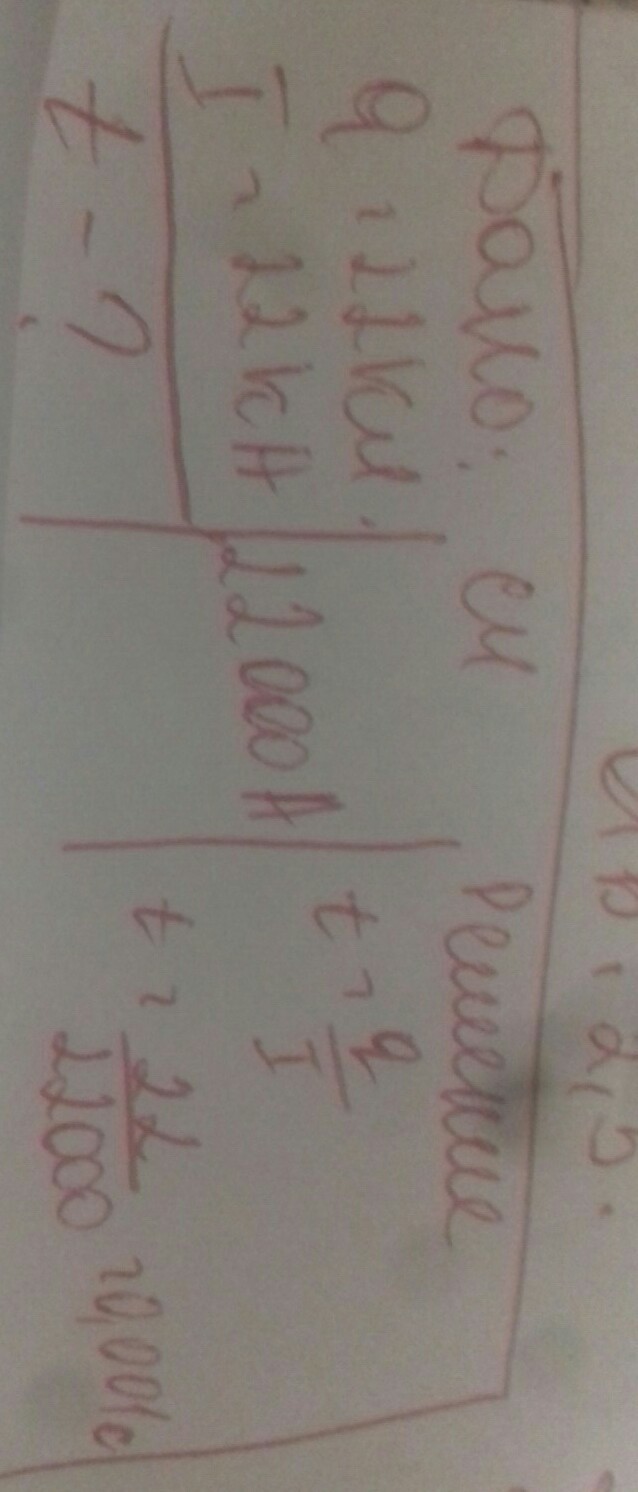 Дано: СИ Решение
q = 22 Кл.
I = 22 кА 22000 А
t - ?
t = q/I
t = 22/22000 = 0,001 с